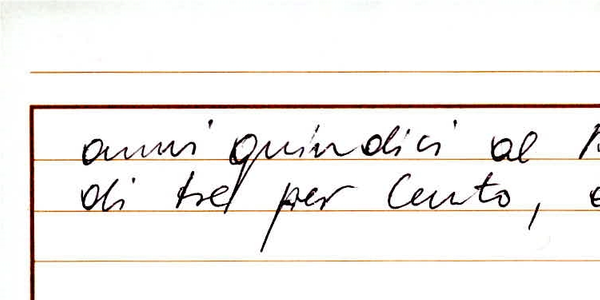 anni quindici al
di tre per cento,